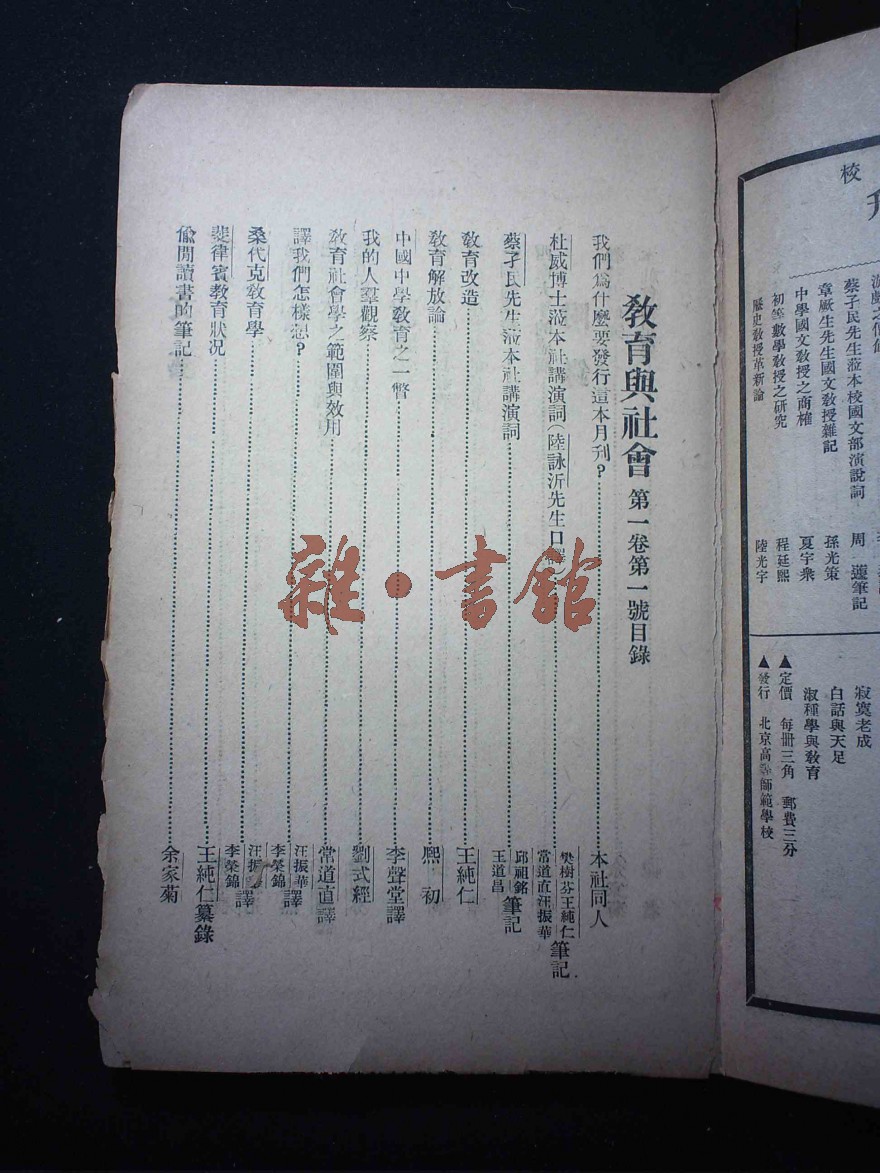 教育與社會 第一卷第一號目錄
我們爲什麽要發行這本月刊?……本社同人
杜威博士蒞本社講演詞(陸詠沂先生口譯)……樊樹芬王純仁常道直汪振華筆記
蔡孑民先生蒞本社講演詞……邱祖銘王道昌筆記
教育改造……王純仁
教育解放論……熙初
中國中學教育之一瞥……李聲堂譯
我的人羣觀察……劉式經
教育社會學之範圍與效用……常道直譯
譯我們怎樣想?……汪振華李榮錦譯
桑代克教育學……汪振華李榮錦譯
斐律賓教育狀況……王純仁纂錄
偸閒讀書的筆記……余家菊
雜·書館
校
蔡孑民先生蒞本校國文部演說詞 周蘧筆記
章厥生先生國文教授雜記 孫光策
中學國文教授之商榷 夏宇衆
初等數學教授之研究 程廷熙
歷史教授革新論 陸光宇
寂寞老成
白話與天足
淑種學與教育
▲定價 每冊三角 郵費三分
▲發行 北京高等師範學校